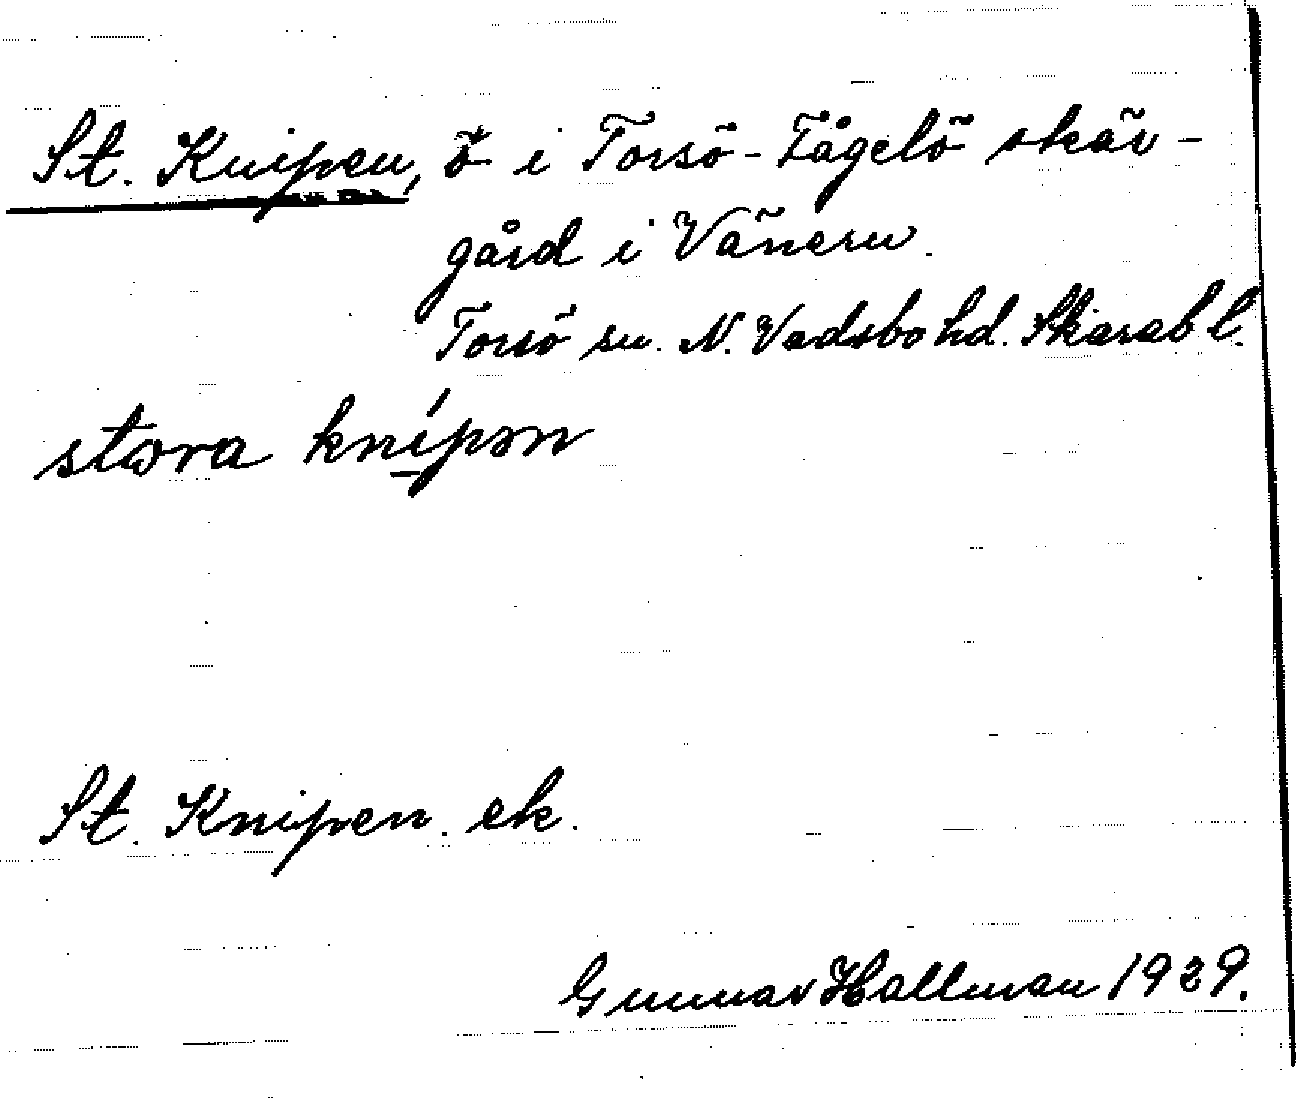 St. Knipen, ö i Torsö-Fågelö skär-
gård i Vänern.
Torsö sn. N. Vadsbo hd. Skarab l.
stora knípən
St. Knipen. ek.
Gunnar Hallman 1929.